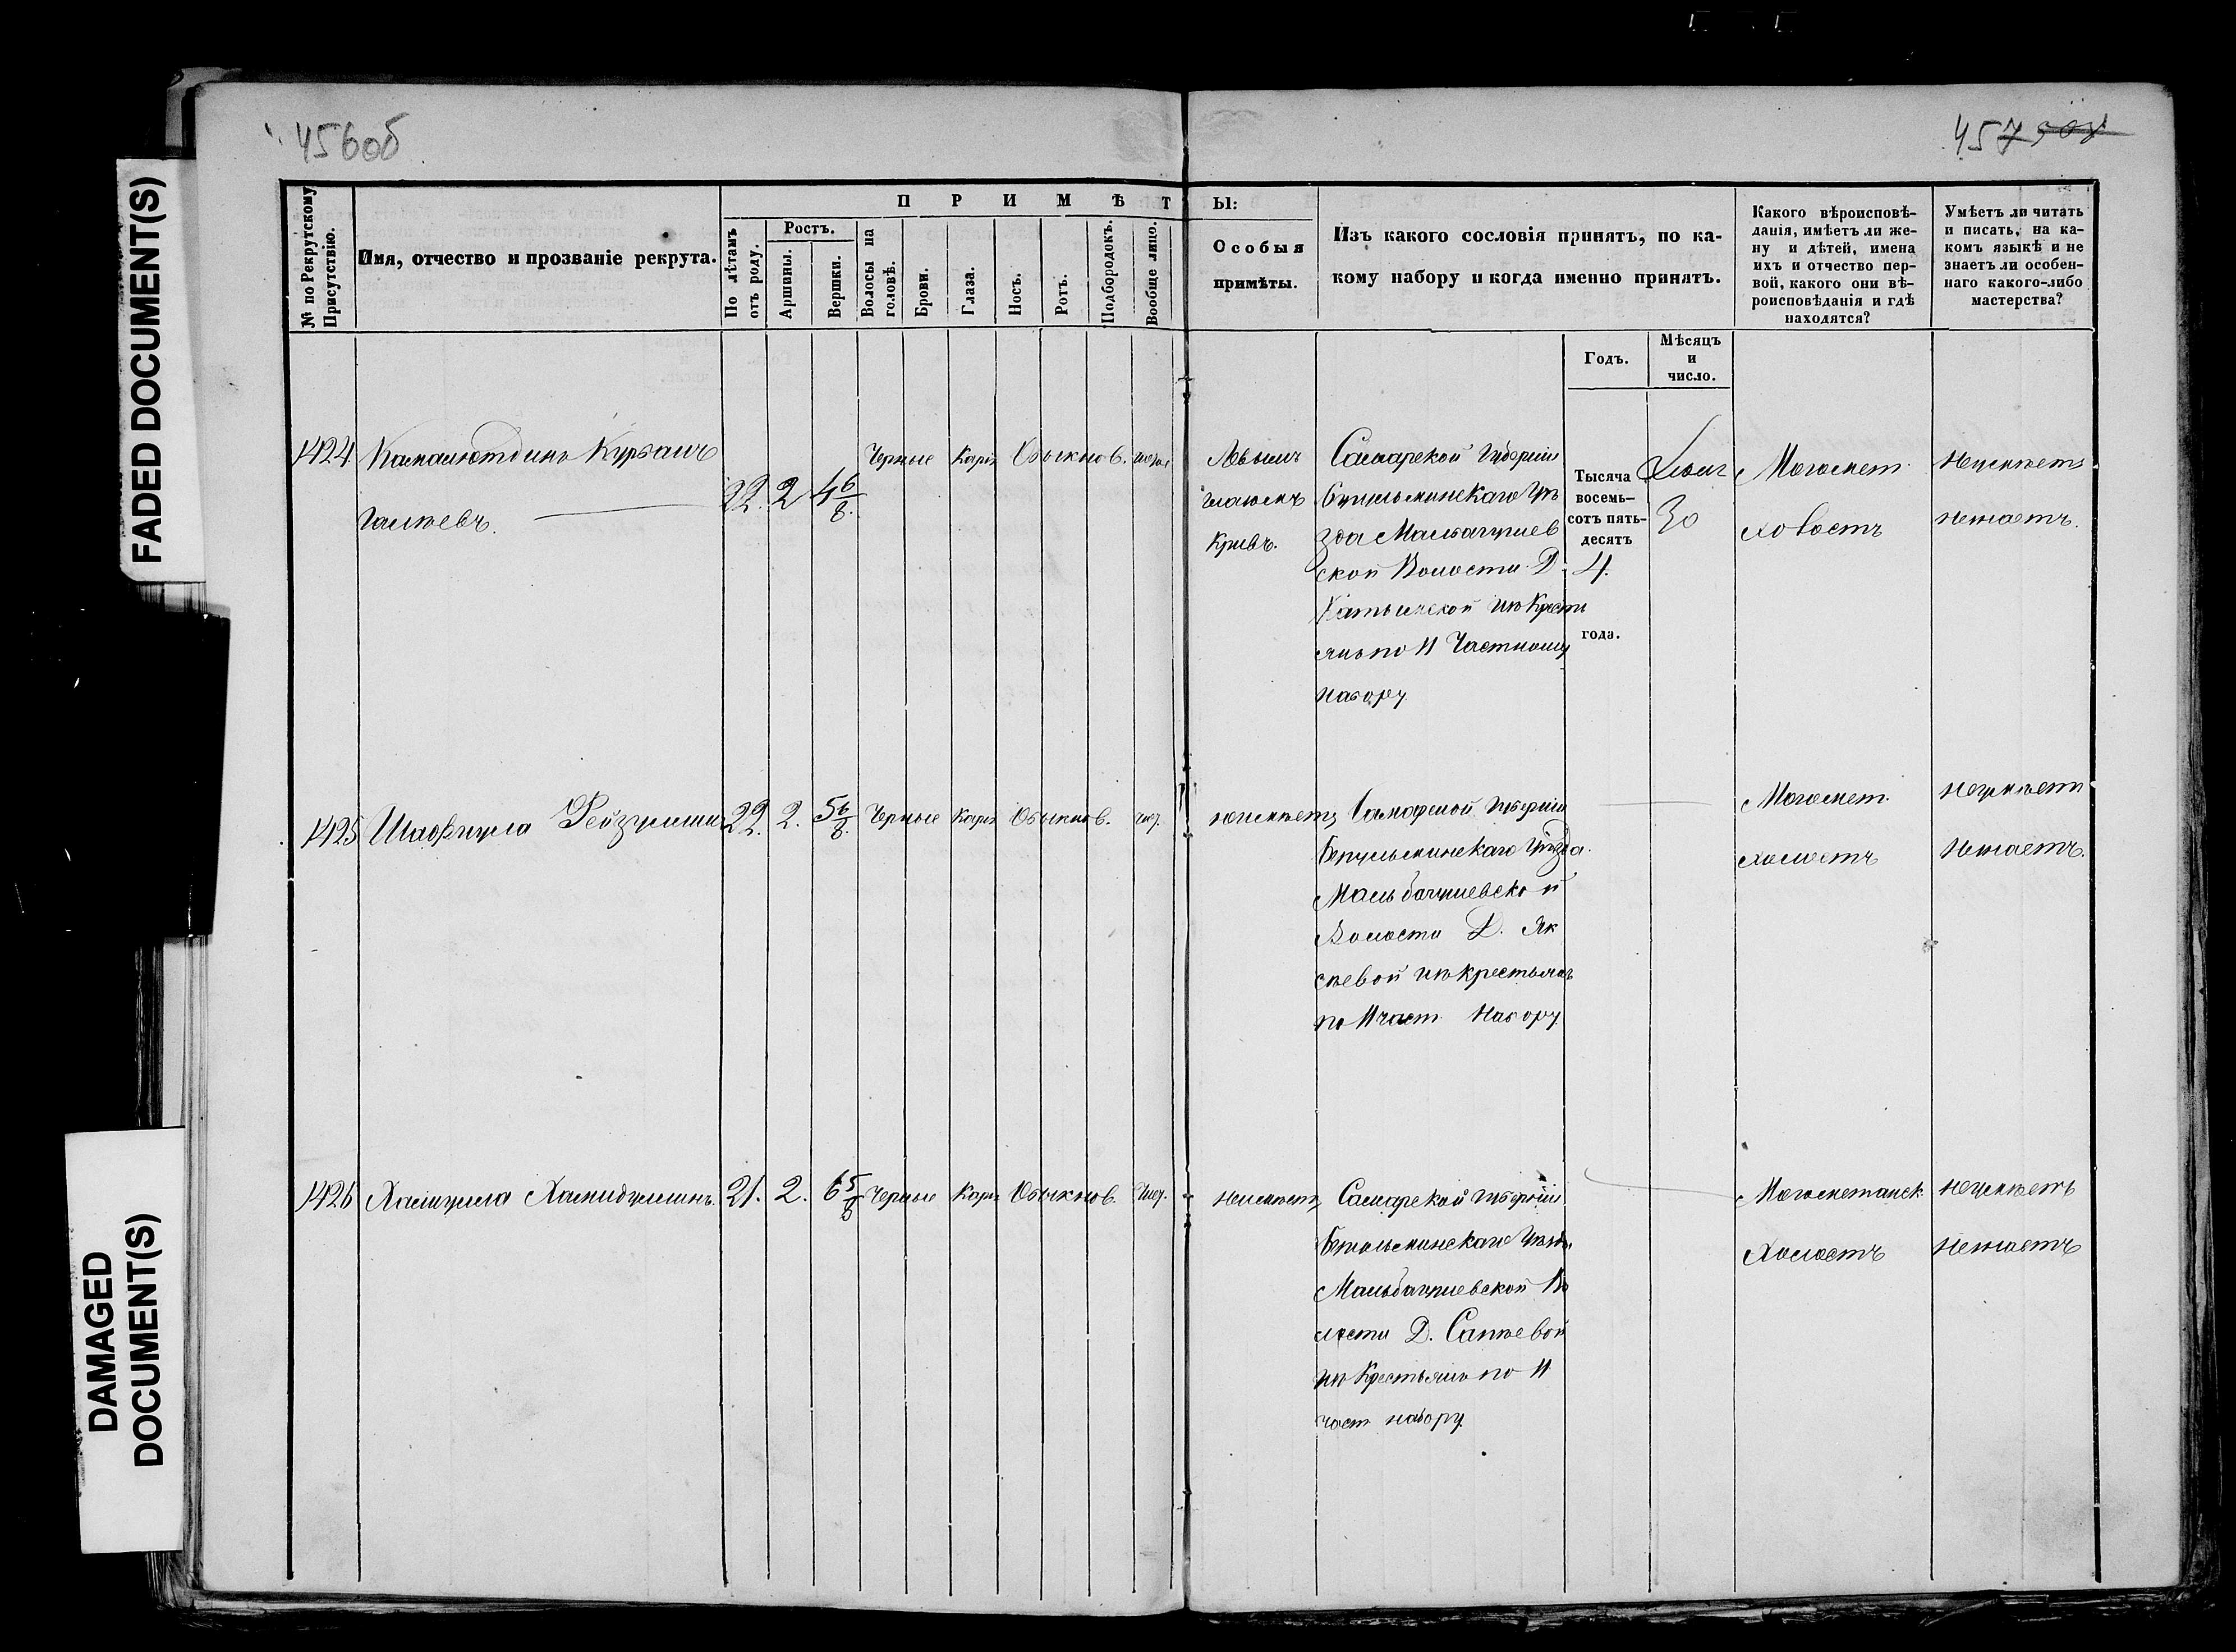 456об
457
FADED DOCUMENT(S)
DAMAGED
DOCUMENT(S)
П Р И М Ѣ Т Ы:
№ по Рекрутскому
Присутствію.
Имя, отчество и прозваніе рекрута.
По лѣтамъ
отъ роду.
Ростъ.
Аршины.
Вершки.
Волосы на
головѣ.
Брови.
Глаза.
Носъ.
Ротъ.
Подбородокъ.
Вообще лицо.
Особыя
примѣты.
Изъ какого сословія принятъ, по ка-
кому набору и когда именно принятъ.
Годъ.
Мѣсяцъ
и
число.
Какого вѣроисповѣ-
данія, имѣетъ ли же-
ну и дѣтей, имена
ихъ и отчество пер-
вой, какого они вѣ-
роисповѣданія и гдѣ
находятся?
Умѣетъ ли читать
и писать, на ка-
комъ языкѣ и не
знаетъ ли особен-
наго какого-либо
мастерства?
1424
Камалютдинъ Курбанъ
галѣевъ.
22. 2 4 6/8.
Черные Каріе Обыкнов.
Лѣвымъ
глазомъ
кривъ.
Самарской Губерніи
Бугульминскаго Уѣ
зда Мальбагушев
ской Волости Д.
изъ Крести
янъ по 11 Частному
набору
Тысяча
восемь-
сотъ пять-
десятъ
4.
года.
30
Магомет.
холостъ
Неумѣетъ
Незнаетъ.
1425 Шафигула Фейзулинъ 22. 2. 5 6/8. Черные Каріе Обыкнов. чис.
неимѣетъ
Самарской Губерніи
Бугульминскаго Уѣзда.
Мальбагушевской
Волости Д. Як
сѣевой изъ крестьянъ
по 11 част. Набору
Магомет.
холостъ
Неумѣетъ
Незнаетъ.
1426 Халиулла Хамидулинъ. 21. 2. 6 5/8 Черные Каріе Обыкнов. Чис.
неимѣетъ
Самарской Губерніи
Бугульминскаго Уѣзда
Мальбагушевской Во
лости Д. Сапѣевой
изъ Крестьянъ по 11
част набору
Магометанск
Холостъ
Неумѣетъ
Незнаетъ